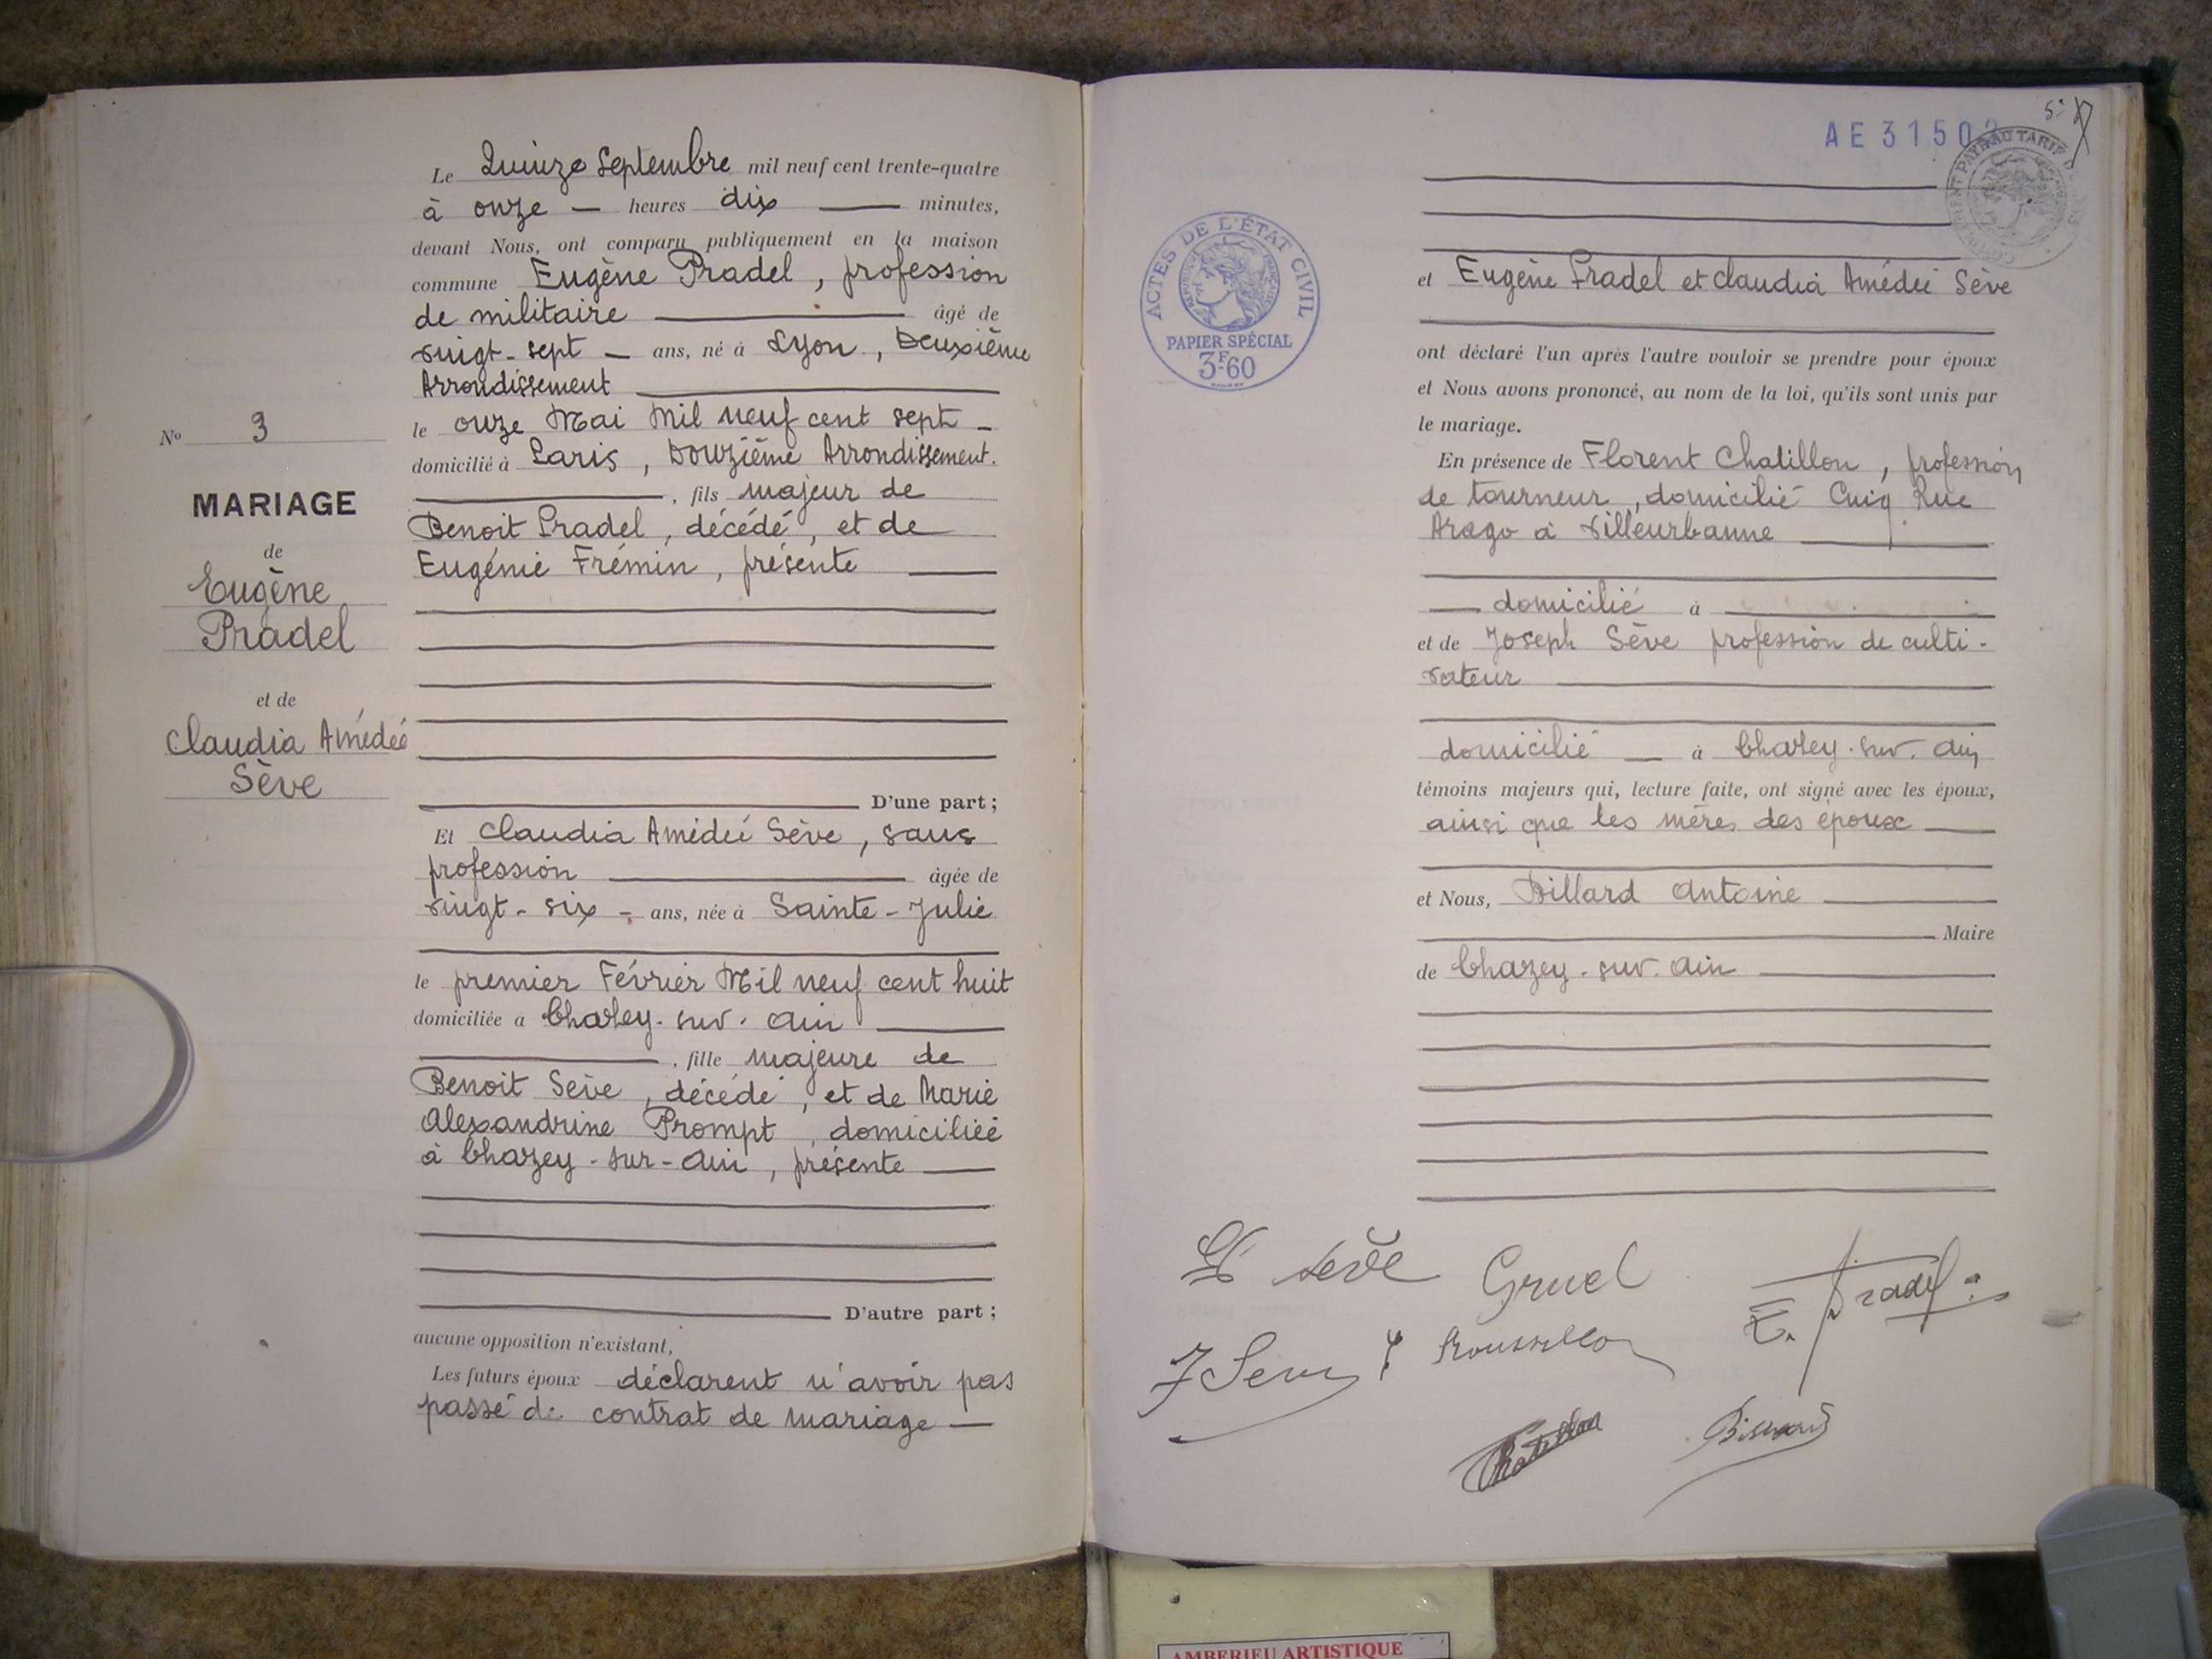 Le Quinze Septembre mil neuf cent trente-quatre
à onze — heures dix — minutes,
devant Nous, ont comparu publiquement en la maison
commune Eugène Pradel, profession
de militaire — âgé de
vingt-sept — ans, né à Lyon, Deuxième
Arrondissement
le onze Mai Mil neuf cent sept —
domicilié à Paris, Douzième Arrondissement.
, fils majeur de
Benoit Pradel, décédé, et de
Eugénie Frémin, présente
N° 3
MARIAGE
de
Eugène
Pradel
et de
Claudia Amédée
Sève
D'une part ;
Et Claudia Amédée Sève, sans
profession — âgée de
vingt-six - ans, née à Sainte-Julie
le premier Février Mil neuf cent huit
domiciliée à Chazey-sur-Ain
, fille majeure de
Benoit Sève, décédé, et de Marie
Alexandrine Prompt, domiciliée
à Chazey-sur-Ain, présente
D'autre part ;
aucune opposition n'existant,
Les futurs époux déclarent n'avoir pas
passé de contrat de mariage —
AE 3150
ACTES DE L'ÉTAT CIVIL
PAPIER SPÉCIAL
3F.60
et Eugène Pradel et Claudia Amédée Sève
ont déclaré l'un après l'autre vouloir se prendre pour époux
et Nous avons prononcé, au nom de la loi, qu'ils sont unis par
le mariage.
En présence de Florent Chatillon, profession
de tourneur, domicilié Cinq Rue
Arago à Villeurbanne
— domicilié à
et de Joseph Sève profession de culti-
vateur
domicilié — à Chazey-sur-Ain
témoins majeurs qui, lecture faite, ont signé avec les époux,
ainsi que les mères des époux —
et Nous, Billard Antoine
Maire
de Chazey-sur-Ain
Sève Gruel
E. Pradel
J Sève Roussillon
Chatillon
Billard
AMBERIEU ARTISTIQUE